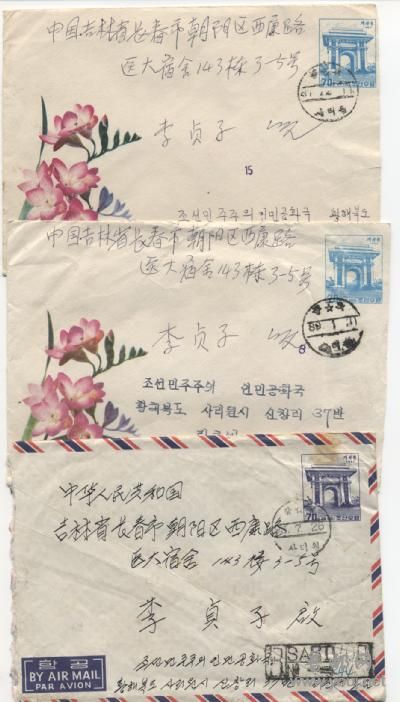 中国吉林省长春市朝阳区西康路
医大宿舍143栋3-5号
李贞子
70
사리원
15
조선민주주의인민공화국 황해북도
中国吉林省长春市朝阳区西康路
医大宿舍143栋3-5号
李贞子
8
조선민주주의 인민공화국
황해북도 사리원시 신창리 37반
中华人民共和国
吉林省长春市朝阳区西康路
医大宿舍 143楼3-5号
李贞子 启
70
사리원
항공
BY AIR MAIL
PAR AVION
조선민주주의인민공화국
황해북도 사리원시 신창리